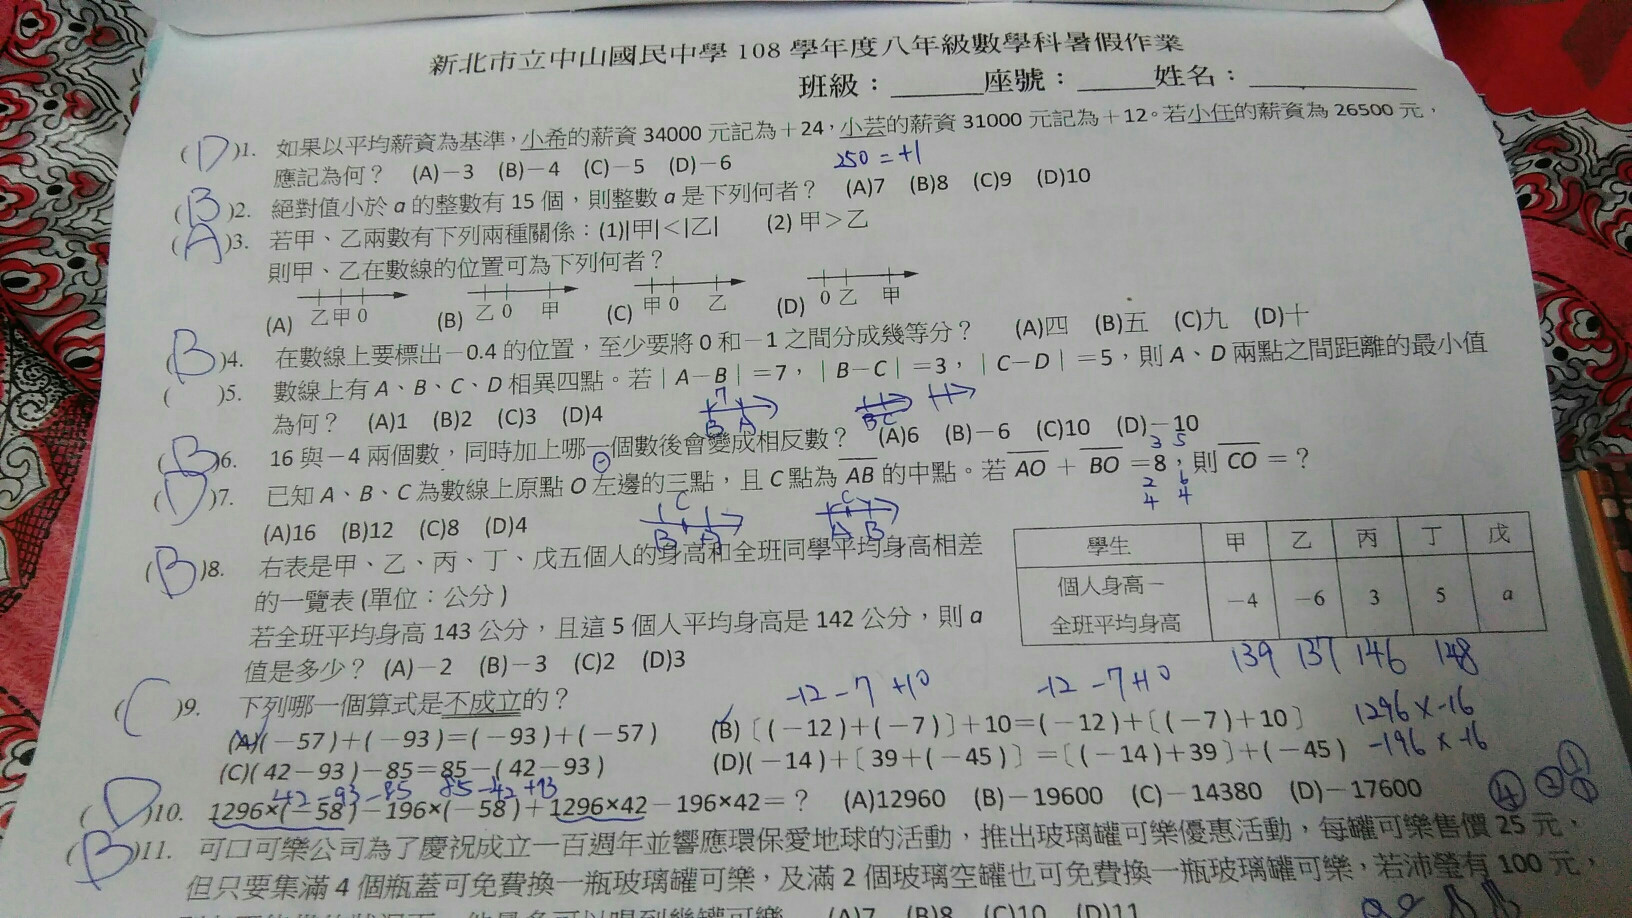 新北市立中山國民中學 108 學年度八年級數學科暑假作業
班級：______座號：_____姓名：___________
(D)1. 如果以平均薪資為基準，小希的薪資 34000 元記為＋24，小芸的薪資 31000 元記為＋12。若小任的薪資為 26500 元，
應記為何？ (A)－3 (B)－4 (C)－5 (D)－6
250 = +1
(B)2. 絕對值小於 a 的整數有 15 個，則整數 a 是下列何者？ (A)7 (B)8 (C)9 (D)10
(A)3. 若甲、乙兩數有下列兩種關係：(1)|甲|＜|乙| (2) 甲＞乙
則甲、乙在數線的位置可為下列何者？
(A) 乙 甲 0 (B) 乙 0 甲 (C) 甲 0 乙 (D) 0 乙 甲
(B)4. 在數線上要標出－0.4 的位置，至少要將 0 和－1 之間分成幾等分？ (A)四 (B)五 (C)九 (D)十
( )5. 數線上有 A、B、C、D 相異四點。若｜A－B｜＝7，｜B－C｜＝3，｜C－D｜＝5，則 A、D 兩點之間距離的最小值
為何？ (A)1 (B)2 (C)3 (D)4
7
B A B C
(B)6. 16 與－4 兩個數，同時加上哪一個數後會變成相反數？ (A)6 (B)－6 (C)10 (D)－10
3 5
(D)7. 已知 A、B、C 為數線上原點 O 左邊的三點，且 C 點為 AB 的中點。若 AO + BO =8，則 CO =？
2 6
4 4
(A)16 (B)12 (C)8 (D)4
C C
B A A B
(B)8. 右表是甲、乙、丙、丁、戊五個人的身高和全班同學平均身高相差
的一覽表 (單位：公分)
若全班平均身高 143 公分，且這 5 個人平均身高是 142 公分，則 a
值是多少？ (A)－2 (B)－3 (C)2 (D)3
學生 甲 乙 丙 丁 戊
個人身高－
全班平均身高 －4 －6 3 5 a
139 137 146 148
(C)9. 下列哪一個算式是不成立的？
-12 - 7 +10 -12 - 7 +10
(A)(－57)＋(－93)＝(－93)＋(－57) (B)〔(－12)＋(－7)〕＋10＝(－12)＋〔(－7)＋10〕
1296 × -16
(C)( 42－93 )－85＝85－( 42－93 ) (D)(－14)＋〔39＋(－45)〕＝〔(－14)＋39〕＋(－45)
-196 × -16
42 - 93 - 85 85 - 42 + 93
(D)10. 1296×(－58)－196×(－58)＋1296×42－196×42＝？ (A)12960 (B)－19600 (C)－14380 (D)－17600
(B)11. 可口可樂公司為了慶祝成立一百週年並響應環保愛地球的活動，推出玻璃罐可樂優惠活動，每罐可樂售價 25 元，
但只要集滿 4 個瓶蓋可免費換一瓶玻璃罐可樂，及滿 2 個玻璃空罐也可免費換一瓶玻璃罐可樂，若沛瑩有 100 元，
(A)7 (B)8 (C)10 (D)11